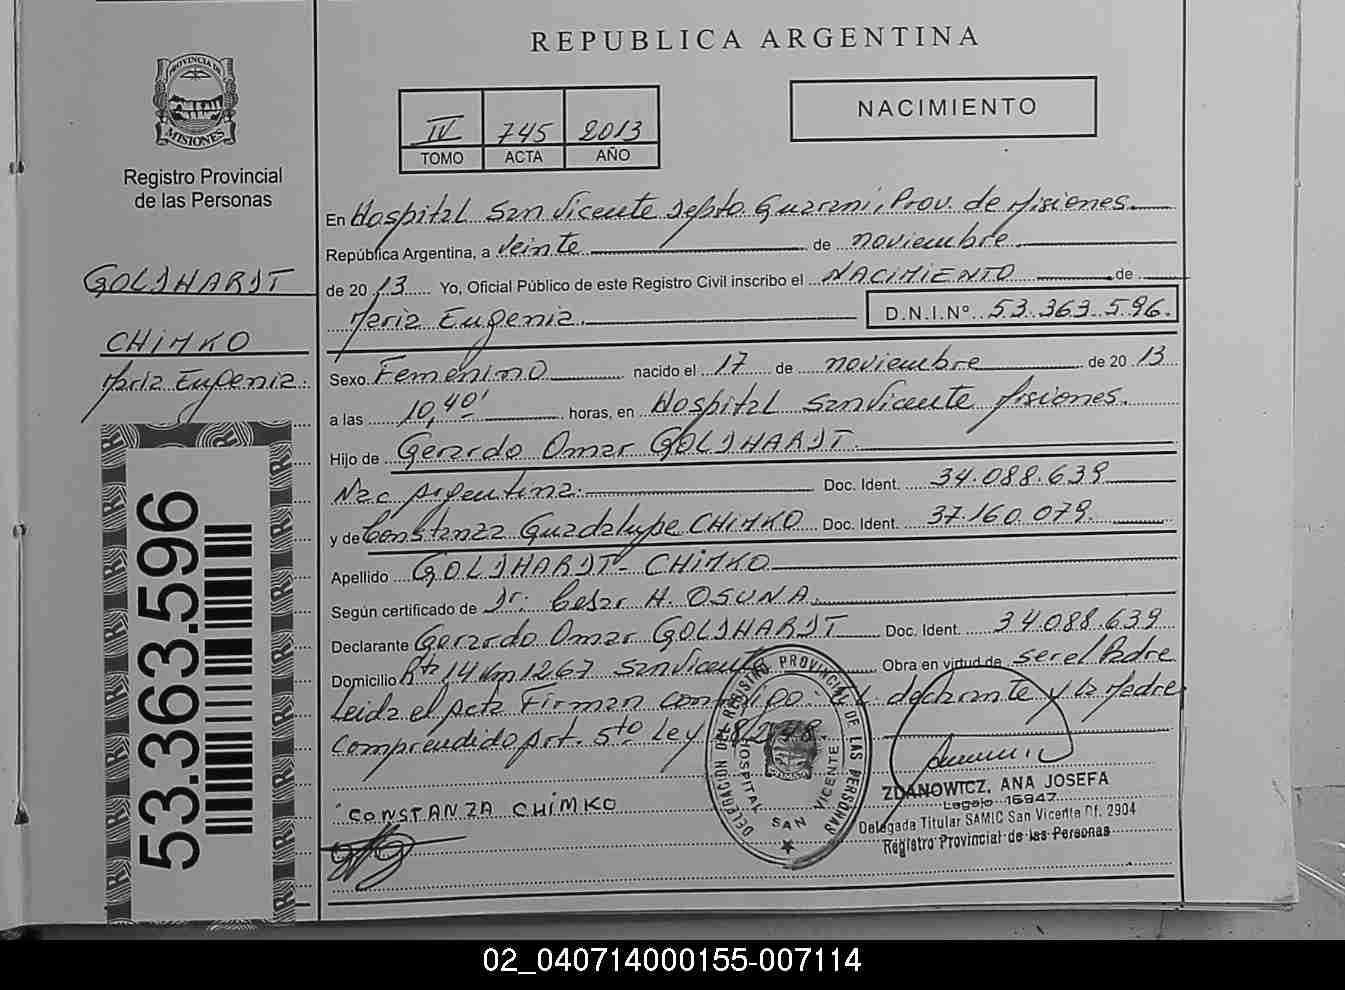 REPUBLICA ARGENTINA
PROVINCIA DE MISIONES
Registro Provincial
de las Personas
IV 745 2013
TOMO ACTA AÑO
NACIMIENTO
En Hospital San Vicente Depto Guarani, Prov. de Misiones.
República Argentina, a Veinte de noviembre
de 2013 Yo, Oficial Público de este Registro Civil inscribo el NACIMIENTO de
Maria Eugenia. D.N.I.Nº 53.363.596.
GOLDHARDT
CHIMKO
Maria Eugenia.
Sexo Femenino nacido el 17 de noviembre de 2013
a las 10,40' horas, en Hospital San Vicente Misiones.
Hijo de Gerardo Omar GOLDHARDT.
Nac Argentina. Doc. Ident. 34.088.639
y de Constanza Guadalupe CHIMKO Doc. Ident. 37.160.079.
Apellido GOLDHARDT- CHIMKO
Según certificado de Dr. Cesar H. OSUNA.
Declarante Gerardo Omar GOLDHARDT Doc. Ident. 34.088.639
Domicilio Rta 14 km 1267 San Vicente Obra en virtud de ser el Padre
Leida el Acta Firman conmigo declarante y la Madre
Comprendido Art. 5to Ley 18248.
CONSTANZA CHIMKO
DELEGACION DEL REGISTRO PROVINCIAL DE LAS PERSONAS
HOSPITAL SAN VICENTE
ZDANOWICZ, ANA JOSEFA
Legajo 16947
Delegada Titular SAMIC San Vicente Of. 2904
Registro Provincial de las Personas
53.363.596
02_040714000155-007114